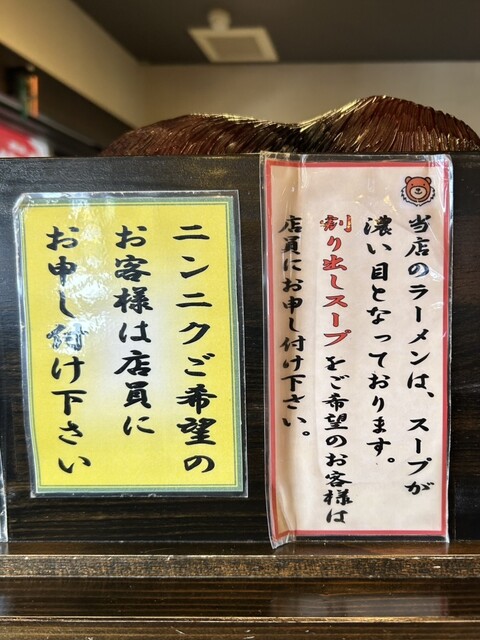 当店のラーメンは、スープが
濃い目となっております。
割り出しスープをご希望のお客様は
店員にお申し付け下さい。
ニンニクご希望の
お客様は店員に
お申し付け下さい